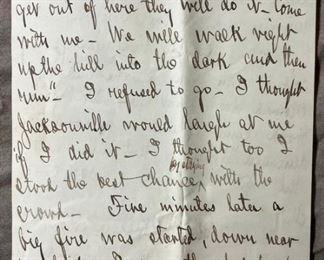 get out of here they will do it - Come
with me - We will walk right
up the hill into the dark and then
run" - I refused to go - I thought
Jacksonville would laugh at me
if I did it - I thought too I
by staying
stood the best chance with the
crowd - Five minutes later a
big fire was started, down near